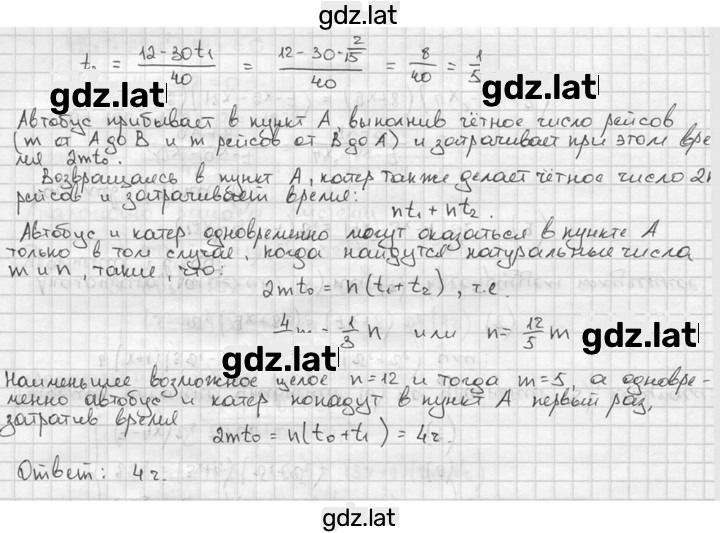 gdz.lat
t₂ = (12-30t₁)/40 = (12-30·2/15)/40 = 8/40 = 1/5
gdz.lat gdz.lat
Автобус прибывает в пункт А, выполнив чётное число рейсов
(m от А до В и m рейсов от В до А) и затрачивает при этом вре
мя 2mt₀.
Возвращаясь в пункт А, катер также делает чётное число 2n
рейсов и затрачивает время:
nt₁ + nt₂.
Автобус и катер одновременно могут оказаться в пункте А
только в том случае, когда найдутся натуральные числа
m и n, такие, что:
2mt₀ = n(t₁+t₂), т.е.
m = 1/3 n или n = 12/5 m
gdz.lat gdz.lat
Наименьшее возможное целое n=12 и тогда m=5, а одновре-
менно автобус и катер попадут в пункт А первый раз,
затратив время
2mt₀ = n(t₀+t₁) = 4ч.
Ответ: 4ч.
gdz.lat